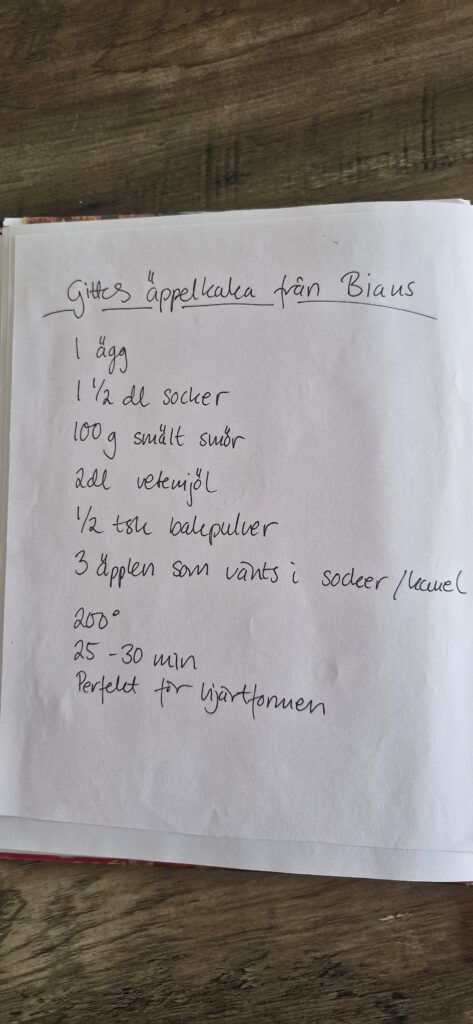 Gittes äppelkaka från Biaus
1 ägg
1 1/2 dl socker
100 g smält smör
2dl vetemjöl
1/2 tsk bakpulver
3 äpplen som vänts i socker/kanel
200°
25 - 30 min
Perfekt för hjärtformen